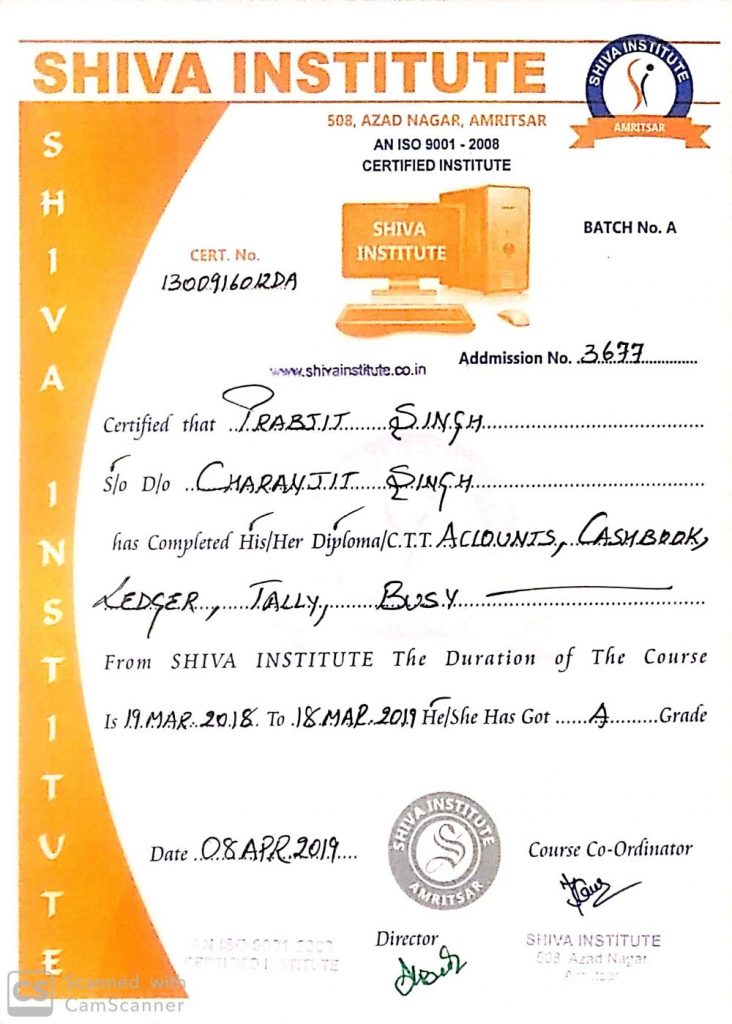 SHIVA INSTITUTE
SHIVA INSTITUTE
AMRITSAR
508, AZAD NAGAR, AMRITSAR
AN ISO 9001 - 2008
CERTIFIED INSTITUTE
SHIVA
INSTITUTE
BATCH No. A
CERT. No.
1300916012DA
Addmission No. 3677
www.shivainstitute.co.in
Certified that Prabjit Singh
S/o D/o Charanjit Singh
has Completed His/Her Diploma/C.T.T. Accounts, Cashbook,
Ledger, Tally, Busy
From SHIVA INSTITUTE The Duration of The Course
Is 19.MAR.2018. To 18.MAR.2019 He/She Has Got A Grade
Date 08 APR.2019
SHIVA INSTITUTE
AMRITSAR
Course Co-Ordinator
Director
AN ISO 9001-2008
CERTIFIED INSTITUTE
SHIVA INSTITUTE
508, Azad Nagar
Amritsar
SHIVA INSTITUTE
CS Scanned with
CamScanner